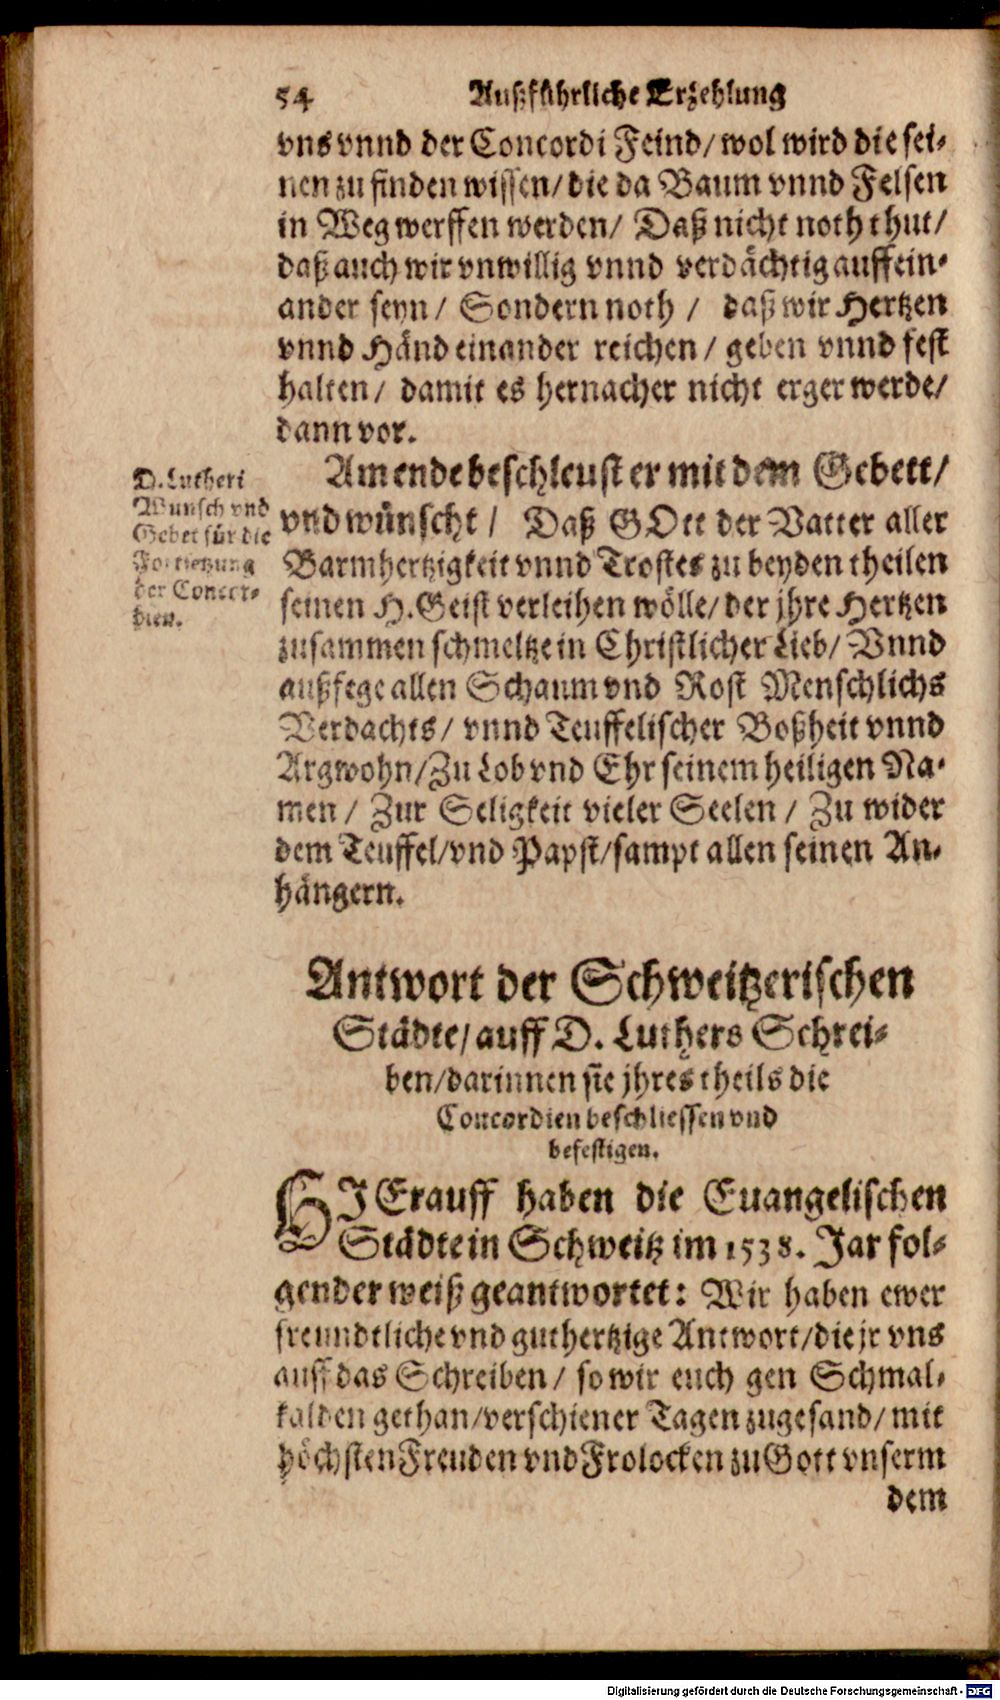 54 Außführliche Erzehlung
vns vnnd der Concordi Feind/ wol wird die sei-
nen zu finden wissen/ die da Baum vnnd Felsen
in Weg werffen werden/ Daß nicht noth thut/
daß auch wir vnwillig vnnd verdächtig auff ein-
ander seyn/ Sondern noth / daß wir Hertzen
vnnd Händ einander reichen / geben vnnd fest
halten/ damit es hernacher nicht erger werde/
dann vor.
Am ende beschleust er mit dem Gebett/
vnd wünscht / Daß GOtt der Vatter aller
Barmhertzigkeit vnnd Trostes zu beyden theilen
seinen H. Geist verleihen wölle/ der jhre Hertzen
zusammen schmeltze in Christlicher Lieb/ Vnnd
außfege allen Schaum vnd Rost Menschlichs
Verdachts/ vnnd Teuffelischer Boßheit vnnd
Argwohn/ Zu Lob vnd Ehr seinem heiligen Na-
men / Zur Seligkeit vieler Seelen / Zu wider
dem Teuffel/ vnd Papst/ sampt allen seinen An-
hängern.
D. Lutheri
Wunsch vnd
Gebet für die
Fortsetzung
der Concor-
dien.
Antwort der Schweitzerischen
Städte/ auff D. Luthers Schrei-
ben/ darinnen sie jhres theils die
Concordien beschliessen vnd
befestigen.
HIErauff haben die Euangelischen
Städte in Schweitz im 1538. Jar fol-
gender weiß geantwortet: Wir haben ewer
freundtliche vnd guthertzige Antwort/ die jr vns
auff das Schreiben / so wir euch gen Schmal-
kalden gethan/ verschiener Tagen zugesand/ mit
höchsten Freuden vnd Frolocken zu Gott vnserm
dem
Digitalisierung gefördert durch die Deutsche Forschungsgemeinschaft - DFG